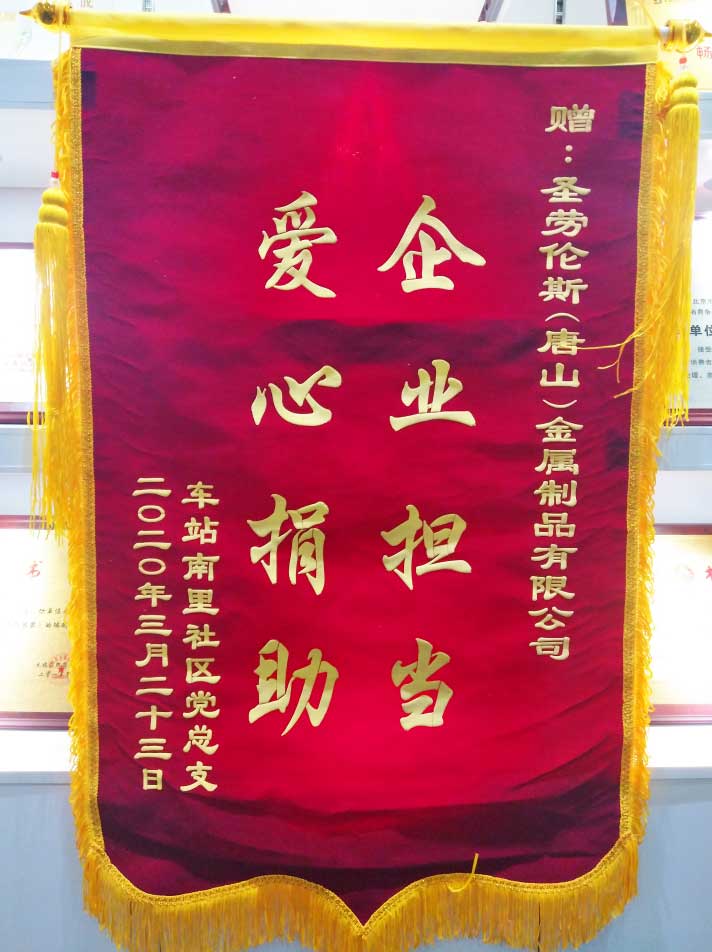 赠：圣劳伦斯（唐山）金属制品有限公司
企业担当
爱心捐助
车站南里社区党总支
二〇二〇年三月二十三日